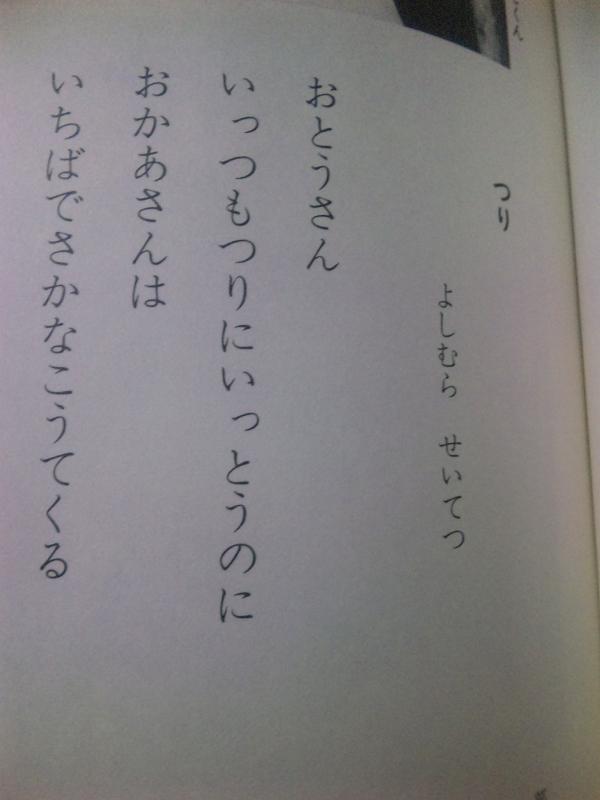 つり
よしむら せいてつ
おとうさん
いっつもつりにいっとうのに
おかあさんは
いちばでさかなこうてくる